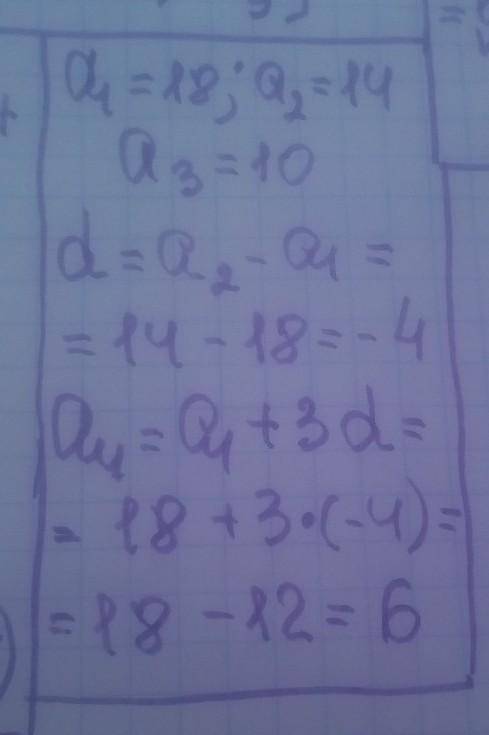 a₁ = 18; a₂ = 14
a₃ = 10
d = a₂ - a₁ =
= 14 - 18 = - 4
a₄ = a₁ + 3d =
= 18 + 3·(-4) =
= 18 - 12 = 6